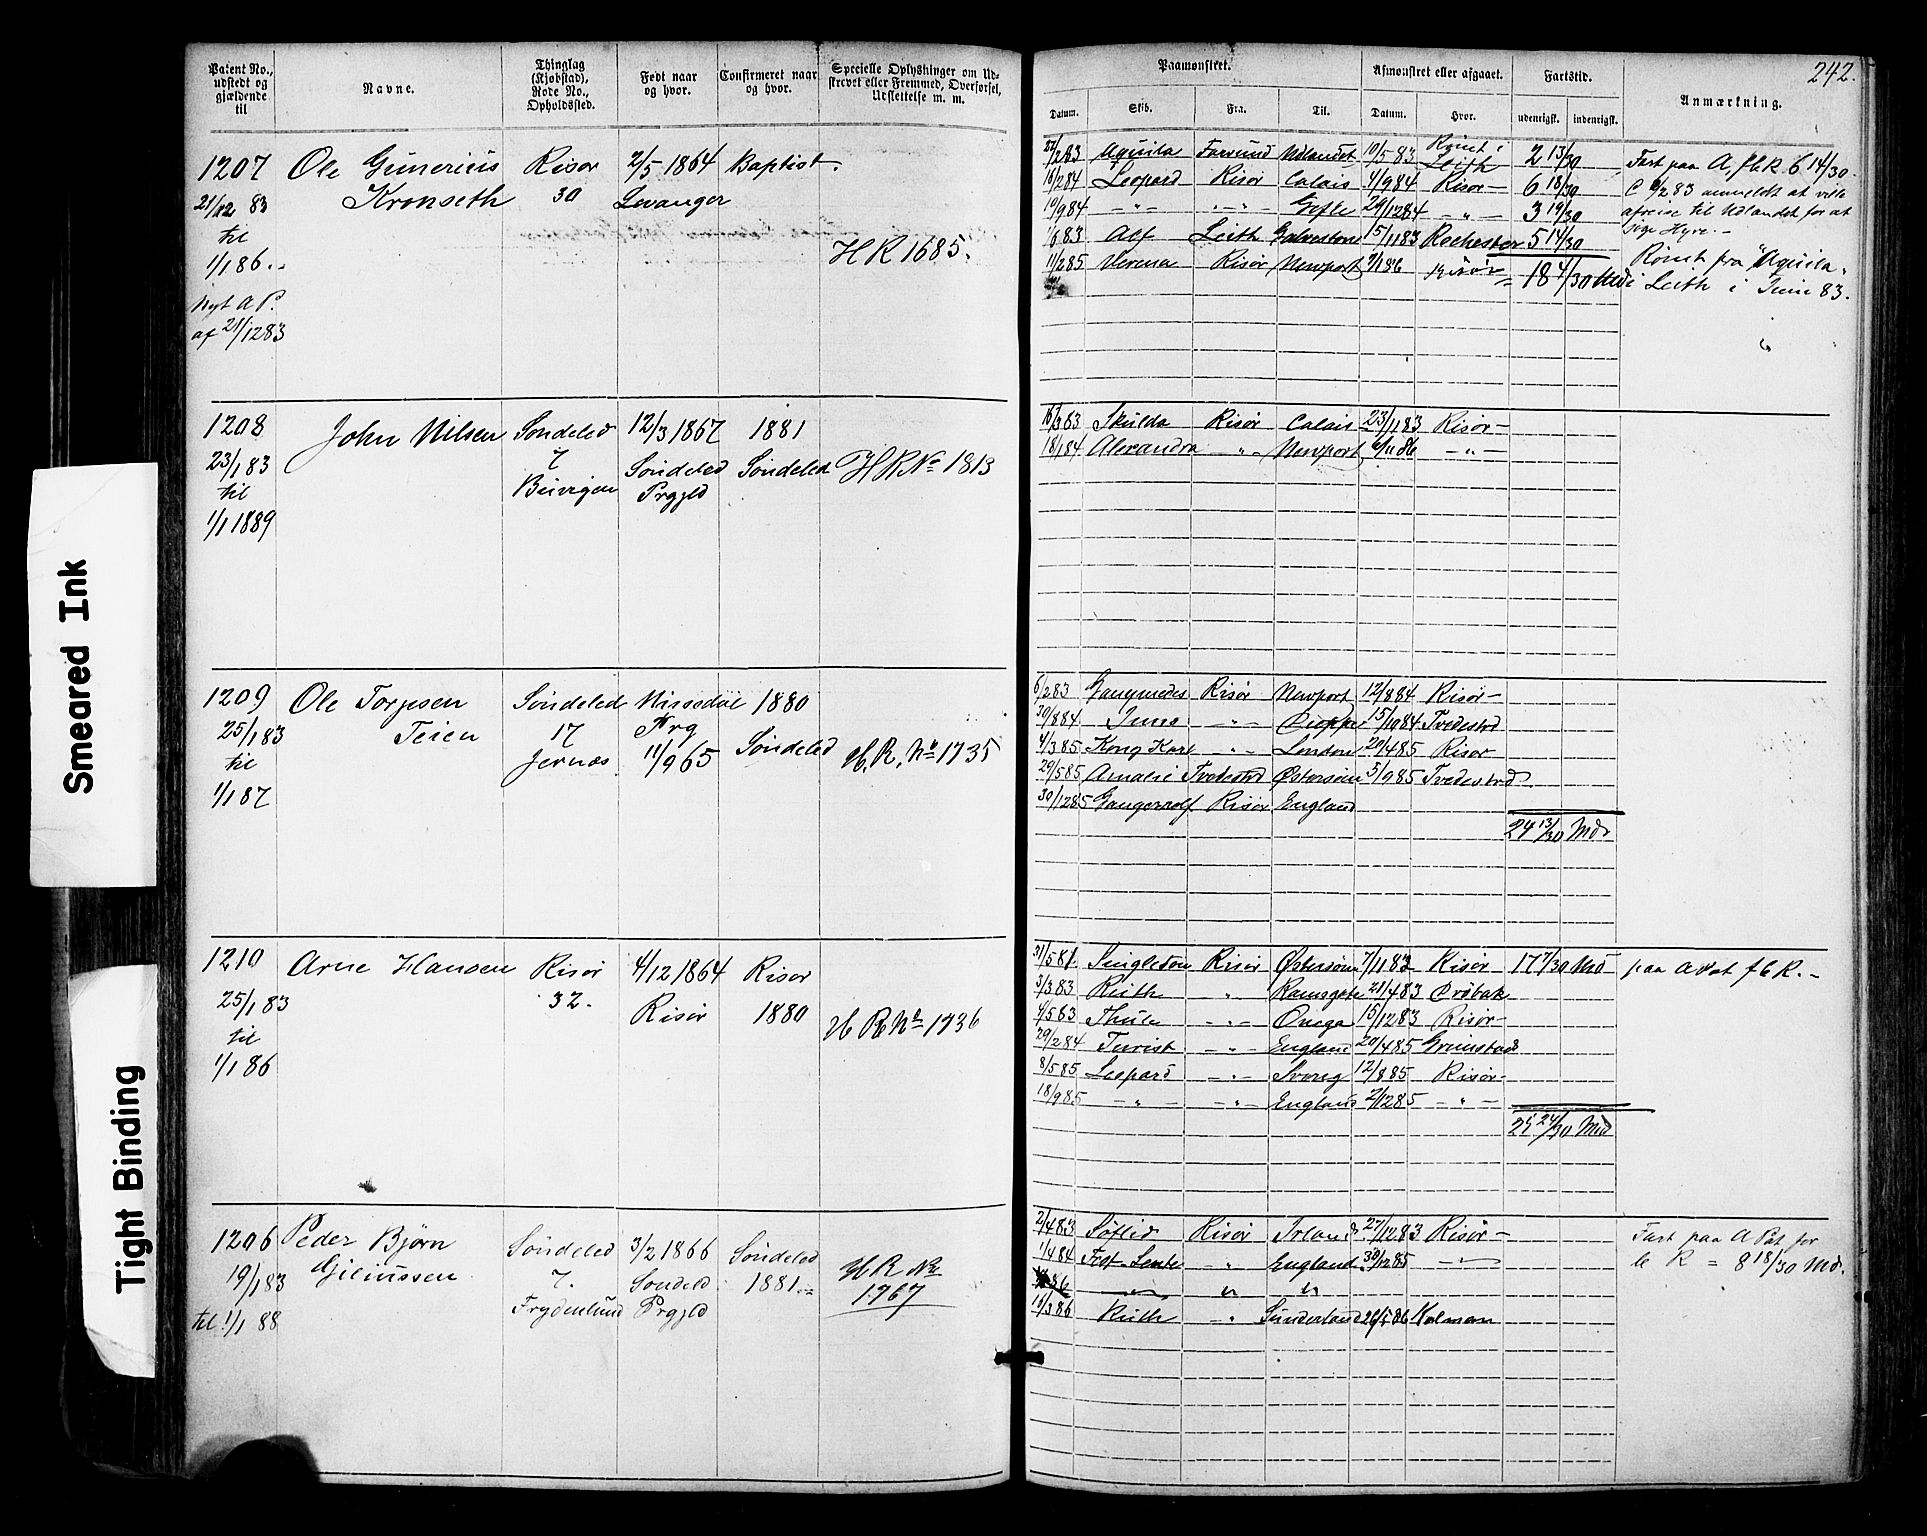 Smeared Ink
Tight Binding
242.
Patent No., udstedt og gjældende til
Navne.
Thinglag (Kjøbstad), Rode No., Opholdssted.
Født naar og hvor.
Confirmeret naar og hvor.
Specielle Oplysninger om Udskrevet eller Fremmed, Overførsel, Udslettelse m. m.
Paamønstret.
Datum.
Skib.
Fra.
Til.
Afmønstret eller afgaaet.
Datum.
Hvor.
Fartstid.
udenrigsk.
indenrigsk.
Anmærkning.
1207 Ole Gunerius Risør 2/5 1864 Baptist.
21/12 83 Kronseth 30 Levanger
til
1/1 86.
Nyt A P.
af 21/12 83
H R 1685.
/2 83 Aquila Farsund Udlandet 10/5 83 Rømt i Leith 2 13/30
18/2 84 Leopard Risør Calais 4/9 84 Risør 6 18/30
10/9 84 - " - - " - Gefle 29/12 84 - " - 3 19/30
1/6 83 Alf Leith Galvestone 15/11 83 Rochester 5 14/30
11/2 85 Verena Risør Newport 7/1 86 Risør = 18 4/30 Md
Fart paa A, f b R 6 14/30.
83 anmeldt at ville
afreise til Udlandet for at
søge Hyre.
Rømt fra "Aquila"
i Leith i Juni 83.
1208 John Nilsen Søndeled 12/3 1867 1881
23/1 83 7 Søndeled Søndeled H R No 1813
til Buvigen Prgjld
1/1 1889
16/3 83 Skulda Risør Calais 23/11 83 Risør
18/1 84 Alexandra - " - Newport 6/11 86 - " -
1209 Ole Torjusen Søndeled Nissedal 1880
25/1 83 Teien 17 Prg Søndeled
til Jernæs 11/9 65 H. R. No 1735
1/1 87
6/2 83 Ganymedes Risør Newport 12/8 84 Risør
30/8 84 Juno - " - Dieppe 15/10 84 Tvedestrd
4/3 85 Kong Karl - " - London 20/4 85 Risør
29/5 85 Amalie Tvedestrd Østersøen 5/9 85 Tvedestrd.
30/12 85 Gangerrolf Risør England
24 13/30 Md
1210 Arne Hansen Risør 4/12 1864 Risør
25/1 83 32. Risør 1880
til H R No 1736
1/1 86
31/5 81 Singleton Risør Østersøen 7/11 82 Risør 17 7/30 Md paa A Pat f b R.
5/3 83 Ruth " Ramsgate 21/4 83 Drøbak
4/5 83 Thule - " - Onega 15/12 83 Risør
29/2 84 Turist - " - England 20/4 85 Grimstad
8/5 85 Leopard - " - Sverig 12/8 85 Risør
18/9 85 - " - - " - England 2/12 85 - " -
25 24/30 Md
1206 Peder Bjørn Søndeled 3/2 1866 Søndeled
19/1 83 Giliussen 7. Søndeld 1881. H R No
til 1/1 88 Frydenlund Prgjld 1767
2/4 83 Søflid Risør Irland 27/12 83 Risør
1/4 84 England 30/12 85 - " -
" "
11/3 86 Ruth - " - Sunderland 26/5 86 Kolmean
Fart paa A Pat for
b R = 8 18/30 Md.